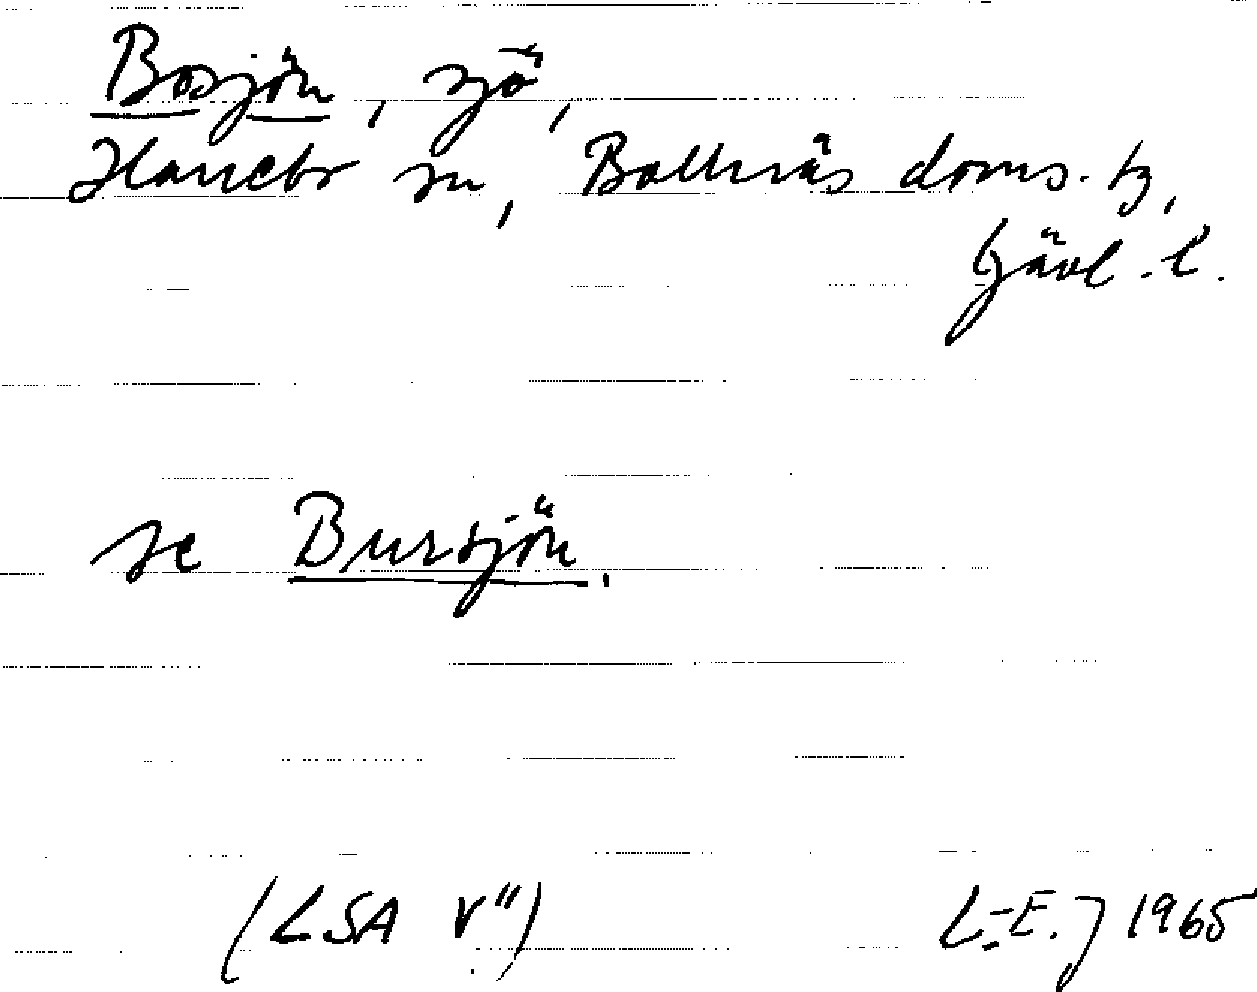 Bosjön, sjö,
Hanebo sn, Bollnäs doms.-tg,
Gävl.-l.
se Bursjön.
(LSA V")
L-E.J 1965